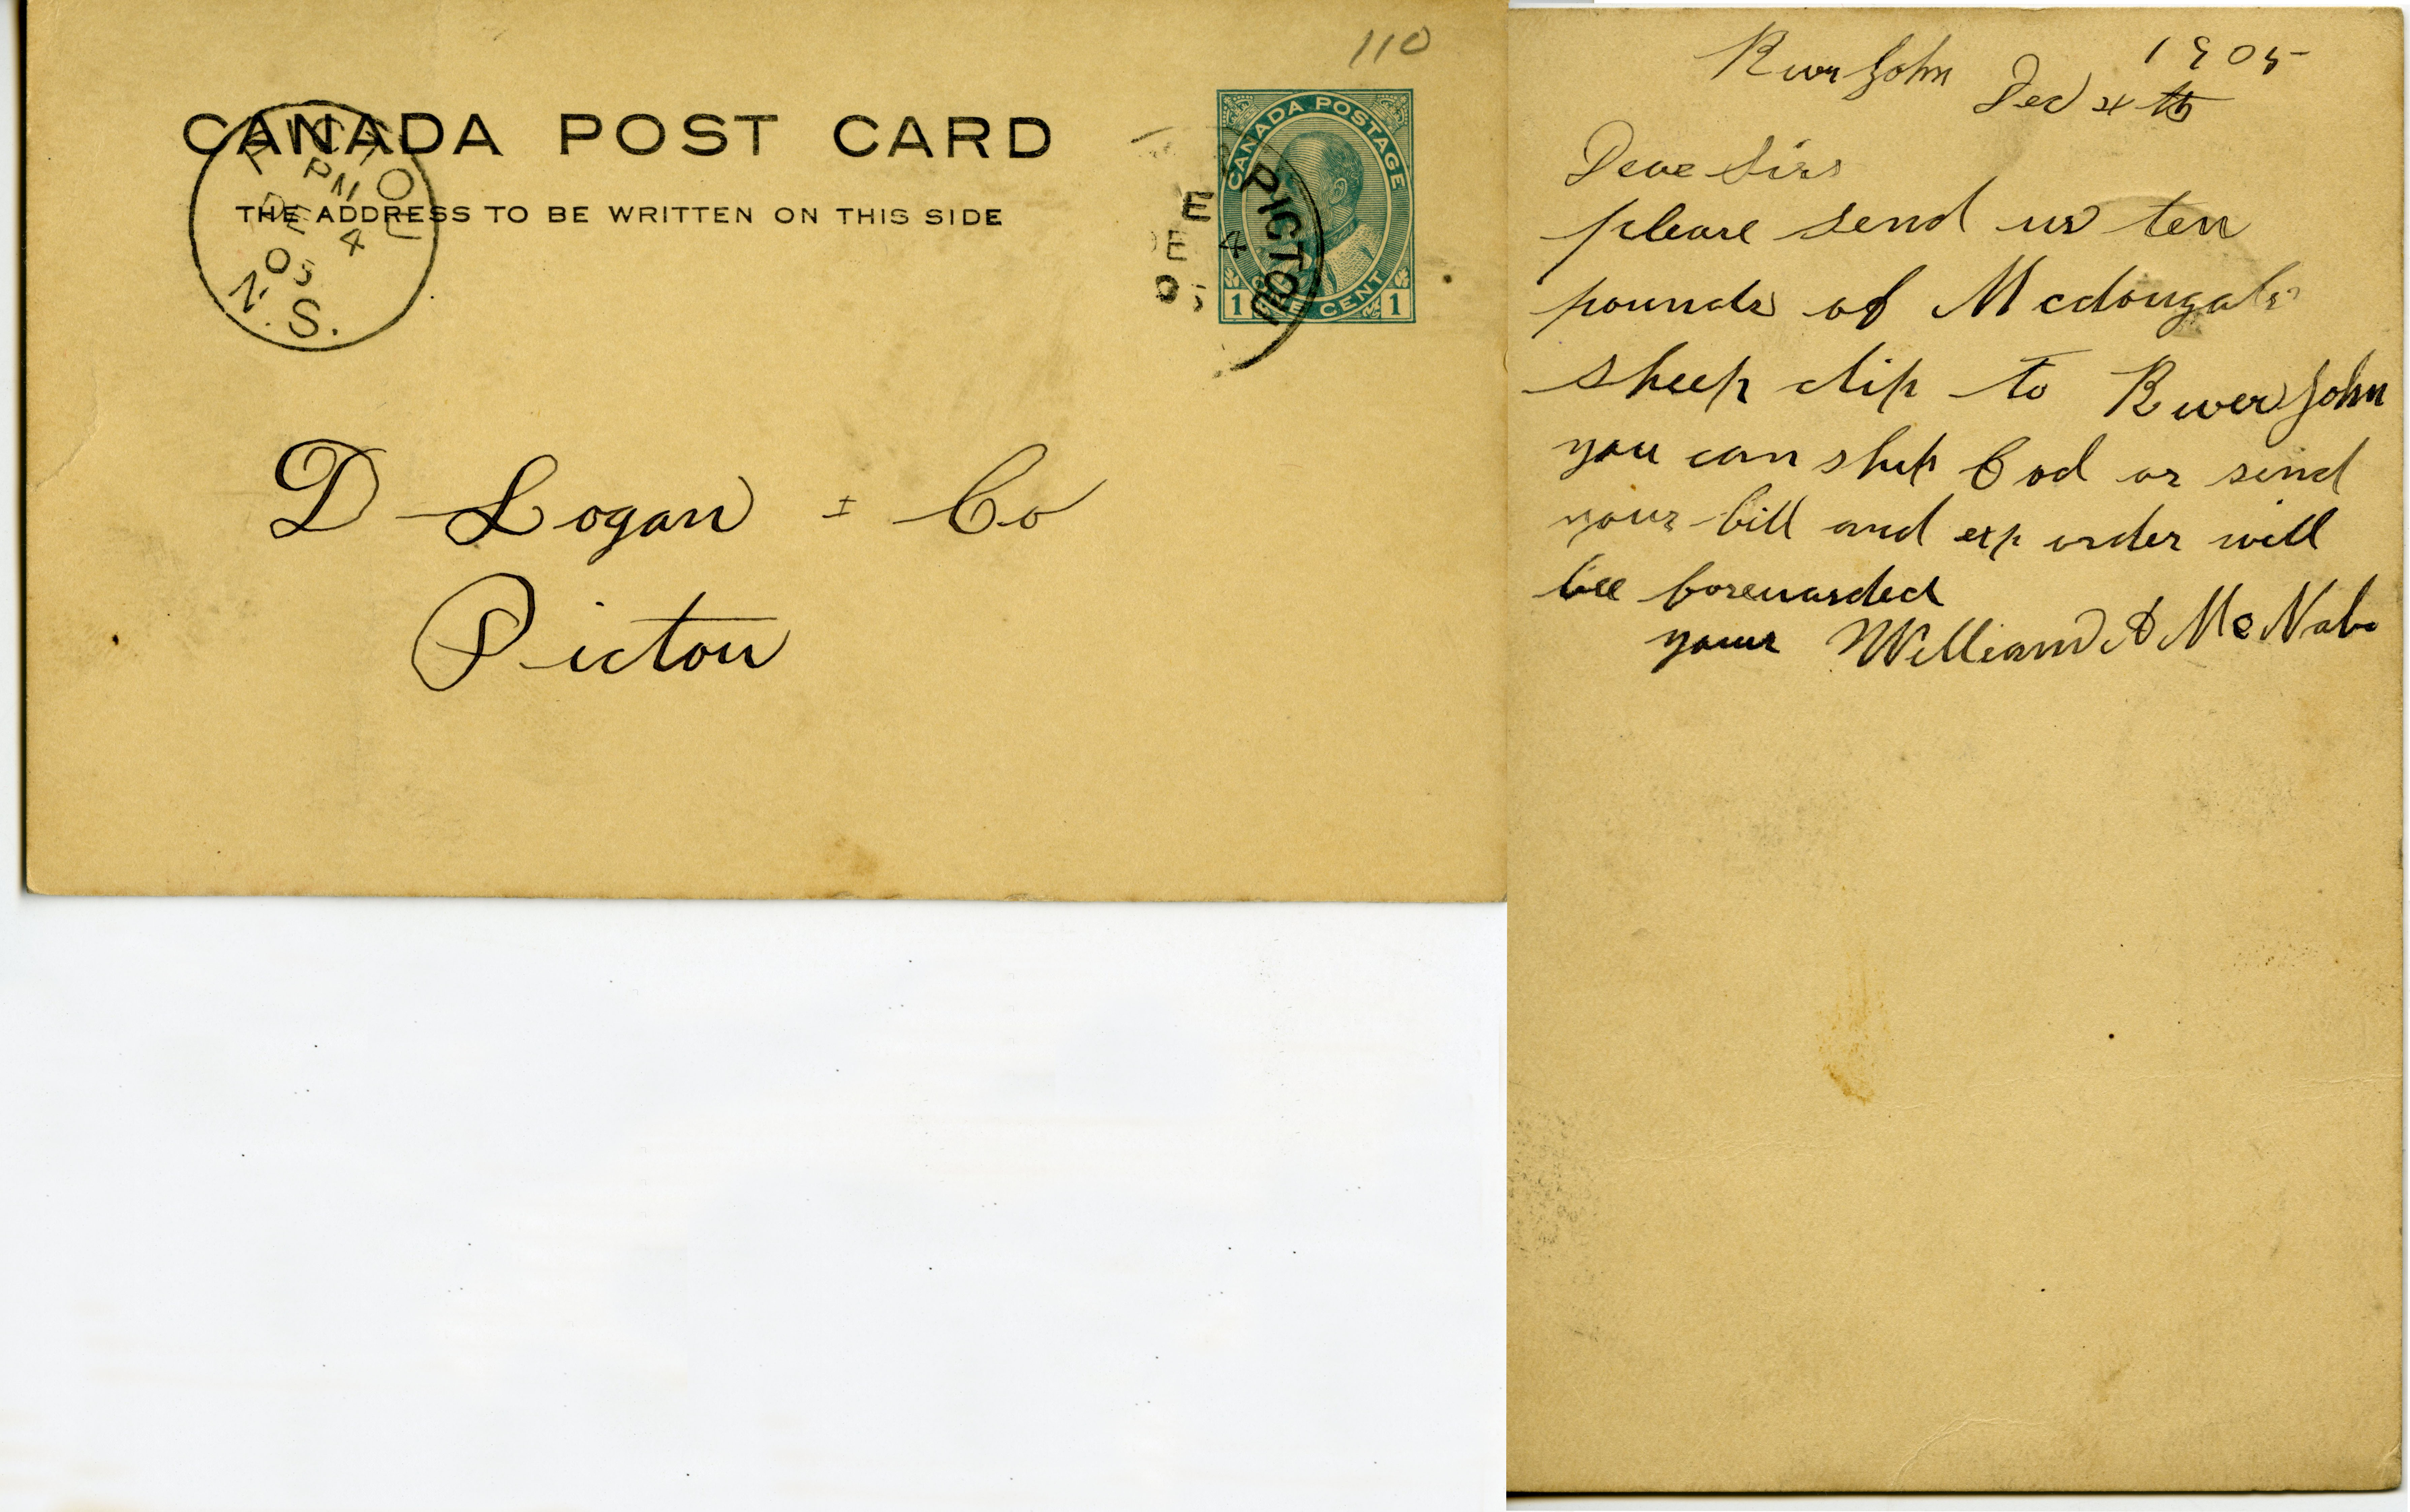 110
CANADA POST CARD
THE ADDRESS TO BE WRITTEN ON THIS SIDE
PICTOU
PM
DE 4
05
N.S.
CANADA POSTAGE
ONE CENT
1 1
PICTOU
E
DE 4
05
D Logan & Co
Pictou
1905
River John Dec 4th
Dear Sirs
please send us ten
pounds of Mcdougals
sheep dip to River John
you can ship Cod or send
your bill and exp order will
bee forewarded
yours William A McNabb